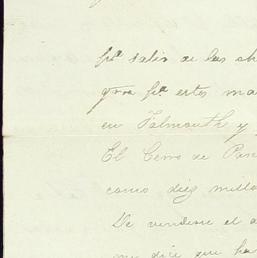 pª salir de las ch
gros pª estos ma
en Falmouth y
El Cerro de Pas
como diez millo
De vendere el a
me dice que ha